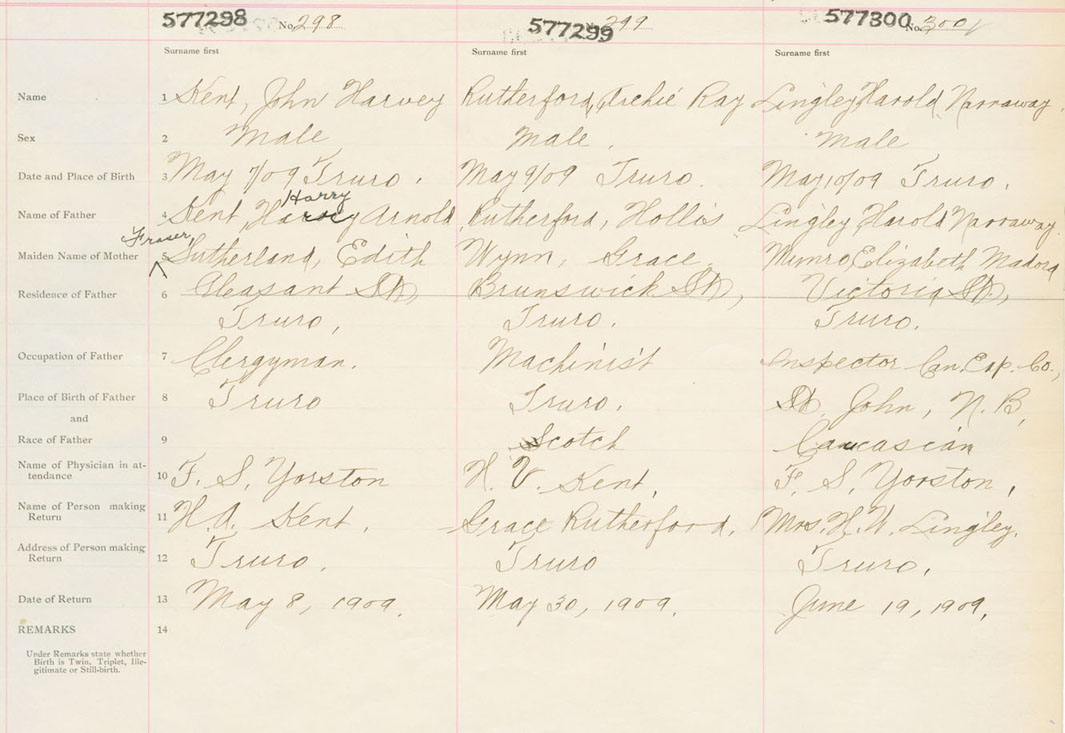 577298 No. 298 577299 299 577300 No. 300
Surname first Surname first Surname first
Name 1 Kent, John Harvey Rutherford, Archie Ray Lingley, Harold Narraway.
Sex 2 Male Male. Male
Date and Place of Birth 3 May 7/09 Truro. May 9/09 Truro. May 10/09 Truro.
Harry
Name of Father 4 Kent, Harvey Arnold, Rutherford, Hollis Lingley, Harold Narraway.
Fraser,
Maiden Name of Mother 5 Sutherland, Edith Wynn, Grace. Munro, Elizabeth Madora
Residence of Father 6 Pleasant St, Brunswick St, Victoria St,
Truro, Truro. Truro.
Occupation of Father 7 Clergyman. Machinist Inspector Can. Exp. Co.,
Place of Birth of Father 8 Truro Truro. St. John, N. B,
and
Race of Father 9 Scotch Caucasian
Name of Physician in at-
tendance 10 F. S. Yorston H. V. Kent, F. S. Yorston,
Name of Person making
Return 11 H. A. Kent. Grace Rutherford. Mrs. H. N. Lingley.
Address of Person making
Return 12 Truro. Truro Truro.
Date of Return 13 May 8, 1909. May 30, 1909. June 19, 1909.
REMARKS 14
Under Remarks state whether
Birth is Twin, Triplet, Ille-
gitimate or Still-birth.